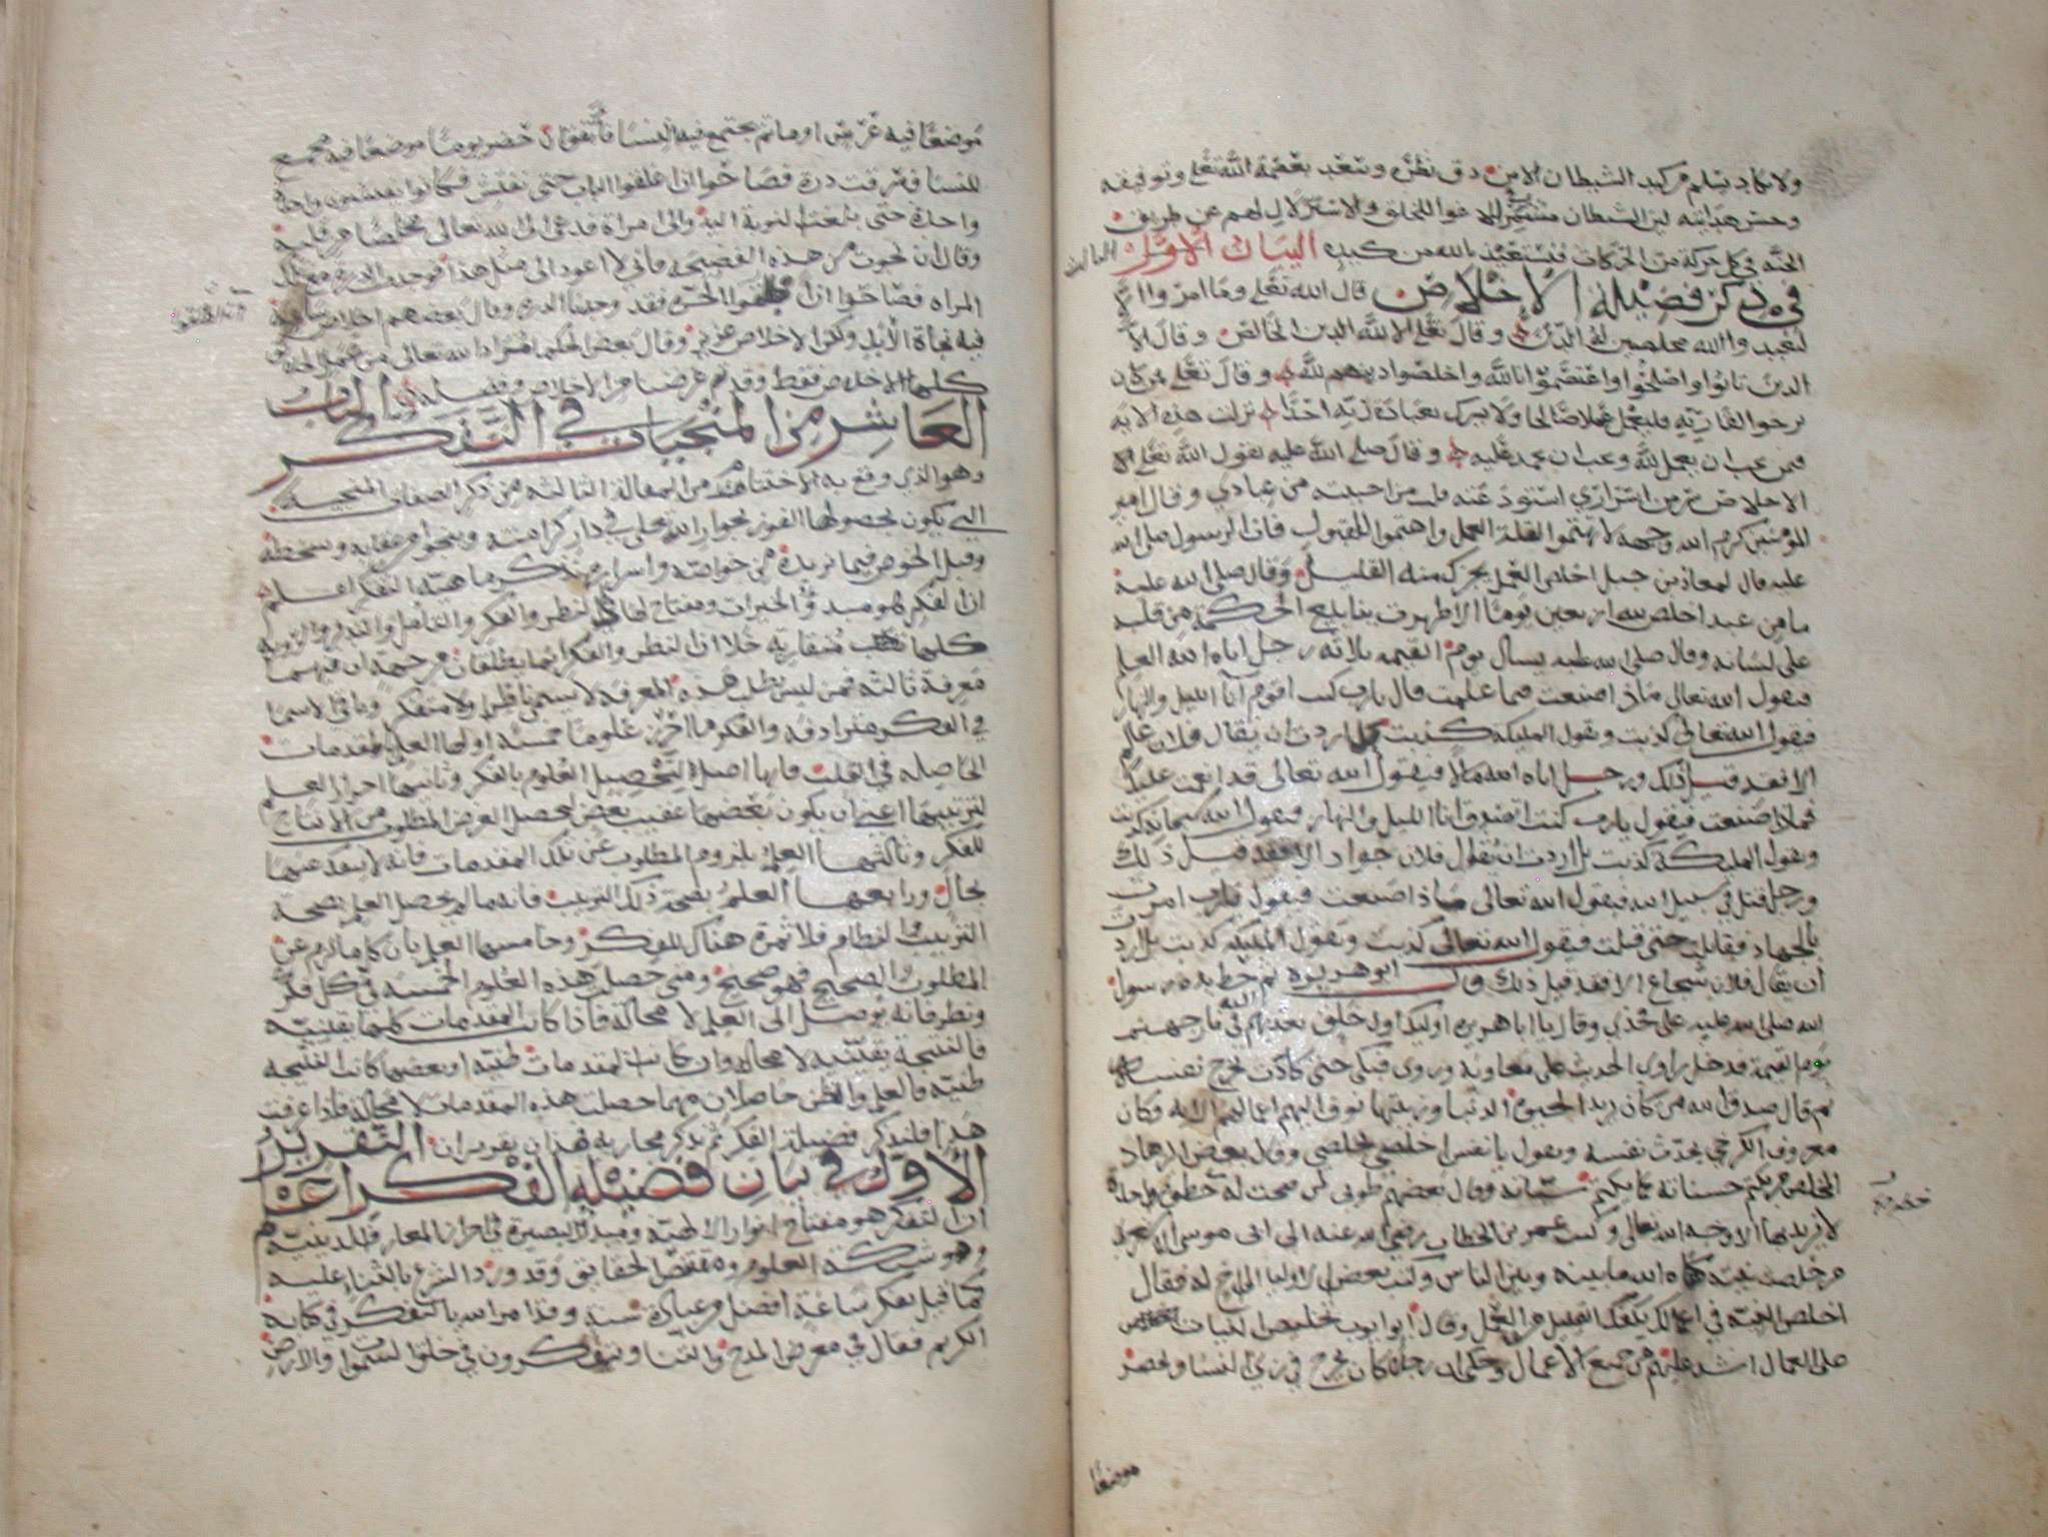 ولا يكاد يسلم من كيد الشيطان الا من دق نظره وسعد بعصمة الله تعلى وتوفيقه
وحسن هدايته لان الشيطان متشمر للاغوا للخلق والاستزلال لهم عن طريق
الجنة في كل حركة من الحركات فنستعيذ بالله من كيده البيان الاول
في ذكر فضيلة الاخلاص قال الله تعلى وما امروا الا
ليعبدوا الله مخلصين له الدين وقال تعلى الا لله الدين الخالص وقال الا
الذين تابوا واصلحوا واعتصموا بالله واخلصوا دينهم لله وقال تعلى فمن كان
يرجوا لقا ربه فليعمل عملا صالحا ولا يشرك بعبادة ربه احدا نزلت هذه الاية
فمن يحب ان يعمل لله ويحب ان يحمد عليه وقال صلى الله عليه يقول الله تعلى
الاخلاص سر من اسراري استودعته قلب من احببته من عبادي وقال امير
المومنين كرم الله وجهه لا تهتموا لقلة العمل واهتموا للقبول فان الرسول صلى الله
عليه قال لمعاذ بن جبل اخلص العمل يجزك منه القليل وقال صلى الله عليه
ما من عبد اخلص لله اربعين يوما الا ظهرت ينابيع الحكمة من قلبه
على لسانه وقال صلى الله عليه يسال يوم القيمة ثلاثة رجل اتاه الله العلم
فيقول الله تعالى ماذا صنعت فيما علمت قال يا رب كنت اقوم انا الليل والنهار
فيقول الله تعالى كذبت وتقول المليكة كذبت بل اردت ان يقال فلان عالم
الا فقد قيل ذلك ورجل اتاه الله مالا فيقول الله تعالى قد انعمت عليك
فماذا صنعت فيقول يا رب كنت اتصدق انا الليل والنهار فيقول الله سبحانه كذبت
وتقول المليكة كذبت بل اردت ان يقال فلان جواد الا فقد قيل ذلك
ورجل قتل في سبيل الله فيقول الله تعالى ماذا صنعت فيقول يا رب امرت
بالجهاد فقاتلت حتى قتلت فيقول الله تعالى كذبت وتقول المليكة كذبت بل اردت
ان يقال فلان شجاع الا فقد قيل ذلك قال ابو هريرة ثم خط بيده رسول
الله صلى الله عليه على فخذي وقال يا ابا هريرة اوليك اول خلق تسعر بهم نار جهنم
يوم القيمة فدخل راوي الحديث على معاوية وروى فبكى حتى كادت تخرج نفسه
ثم قال صدق الله من كان يريد الحيوة الدنيا وزينتها نوف اليهم اعمالهم الاية وكان
معروف الكرخي يحدث نفسه ويقول يا نفس اخلصي تخلصي وقال بعض الزهاد
المخلص من يكتم حسناته كما يكتم سيئاته وقال بعضهم طوبى لمن صحت له خطوة واحدة
لا يريد بها الا وجه الله تعالى وكتب عمر بن الخطاب رضي الله عنه الى ابى موسى الاشعري
من خلصت نيته كفاه الله ما بينه وبين الناس وكتب بعض الاوليا الى اخ له فقال
اخلص النية في اعمالك يكفك القليل من العمل وقال ابو ايوب تخليص النيات
على العمال اشد عليهم من جميع الاعمال وحكى ان رجلا كان يخرج في زي النسا ويحضر
موضعا
موضعا فيه عرس او ماتم يجتمع فيه النسا فاتفق ان حضر يوما موضعا فيه مجمع
للنسا فسرقت درة فصاحوا ان اغلقوا الباب حتى نفتش فكانوا يفتشون واحدة
واحدة حتى بلغت النوبة اليه والى امراة فدعى الى الله تعالى مخلصا من قلبه
وقال ان نجوت من هذه الفضيحة فاني لا اعود الى مثل هذا فوجدت الدرة مع تلك
المراة فصاحوا ان اطلقوا الحرة فقد وجدنا الدرة وقال بعضهم اخلاص ساعة
فيه نجاة الابد ولكن الاخلاص عزيز وقال بعض الحكما
كلها الاخلاص فقط وقد تم غرضنا من الاخلاص وفضيلته الباب
العاشر من المنجيات في التفكر
وهو الذي وقع به الاختتام من المقالة الثالثة من ذكر الصفات المنجية
التي يكون بحصولها الفوز بجوار الله تعلى في دار كرامته وينجو من عقابه وسخطه
وقبل الخوض فيما نريده من خواصه واسراره نذكر ماهية التفكر اعلم
ان الفكر هو مبدو الخيرات ومفتاح لها والنظر والفكر والتامل والتدبر والروية
كلها متقاربة خلا ان النظر والفكر انما يطلقان من جهة ان فيهما
معرفة ثالثة فمن ليس يطلب هذه المعرفة لا يسمى ناظرا ولا متفكرا وباقي الاسما
في الفكر مترادفة والفكر مما احرز علوما خمسة اولها العلم بالمقدمات
الحاصلة في القلب فانها اصل لتحصيل العلوم بالفكر وثانيها احراز العلم
لترتيبها اعني ان يكون بعضها عقيب بعض ليحصل الغرض المطلوب من الانتاج
للفكر وثالثها العلم بلزوم المطلوب عن تلك المقدمات فانه لا ينفك عنها
بحال ورابعها العلم بصحة ذلك الترتيب فانه مالم يحصل العلم بصحة
الترتيب والنظام فلا ثمرة هناك للفكر وخامسها العلم بان كل ما لزم عن
المطلوب الصحيح فهو صحيح ومتى حصلت هذه العلوم الخمسة في كل فكر
ونظر فانه يوصل الى العلم لا محالة فاذا كانت المقدمات كلها يقينية
فالنتيجة يقينية لا محالة وان كانت المقدمات ظنية او بعضها كانت النتيجة
ظنية فالعلم والظن حاصلان مهما حصلت هذه المقدمات لا محالة فاذا عرفت
هذا فلنذكر فضيلة الفكر ثم نذكر مجاريه فهذان تقريران التقرير
الاول في بيان فضيلة الفكر اعلم
ان التفكر هو مفتاح انوار الالهية ومبدا البصيرة في احراز المعارف الدينية
وهو شبكة العلوم ومقتنص الحقايق وقد ورد الشرع بالثنا عليه
كما قيل تفكر ساعة افضل من عبادة سنة وقد امر الله بالتفكر في كتابه
الكريم فقال في معرض المدح والثنا ويتفكرون في خلق السموات والارض